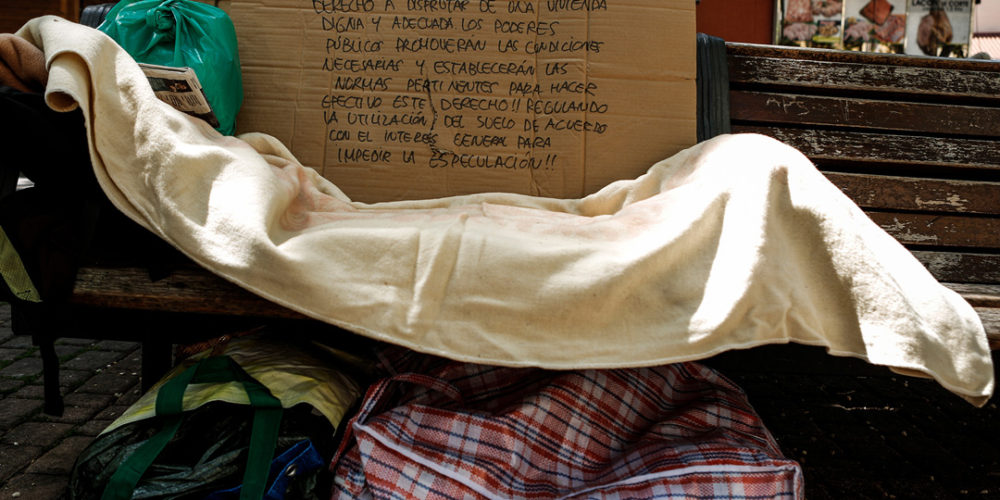 DERECHO A DISFRUTAR DE UNA VIVIENDA
DIGNA Y ADECUADA LOS PODERES
PÚBLICOS PROMOVERÁN LAS CONDICIONES
NECESARIAS Y ESTABLECERÁN LAS
NORMAS PERTINENTES PARA HACER
EFECTIVO ESTE DERECHO!! REGULANDO
LA UTILIZACIÓN DEL SUELO DE ACUERDO
CON EL INTERÉS GENERAL PARA
IMPEDIR LA ESPECULACIÓN!!